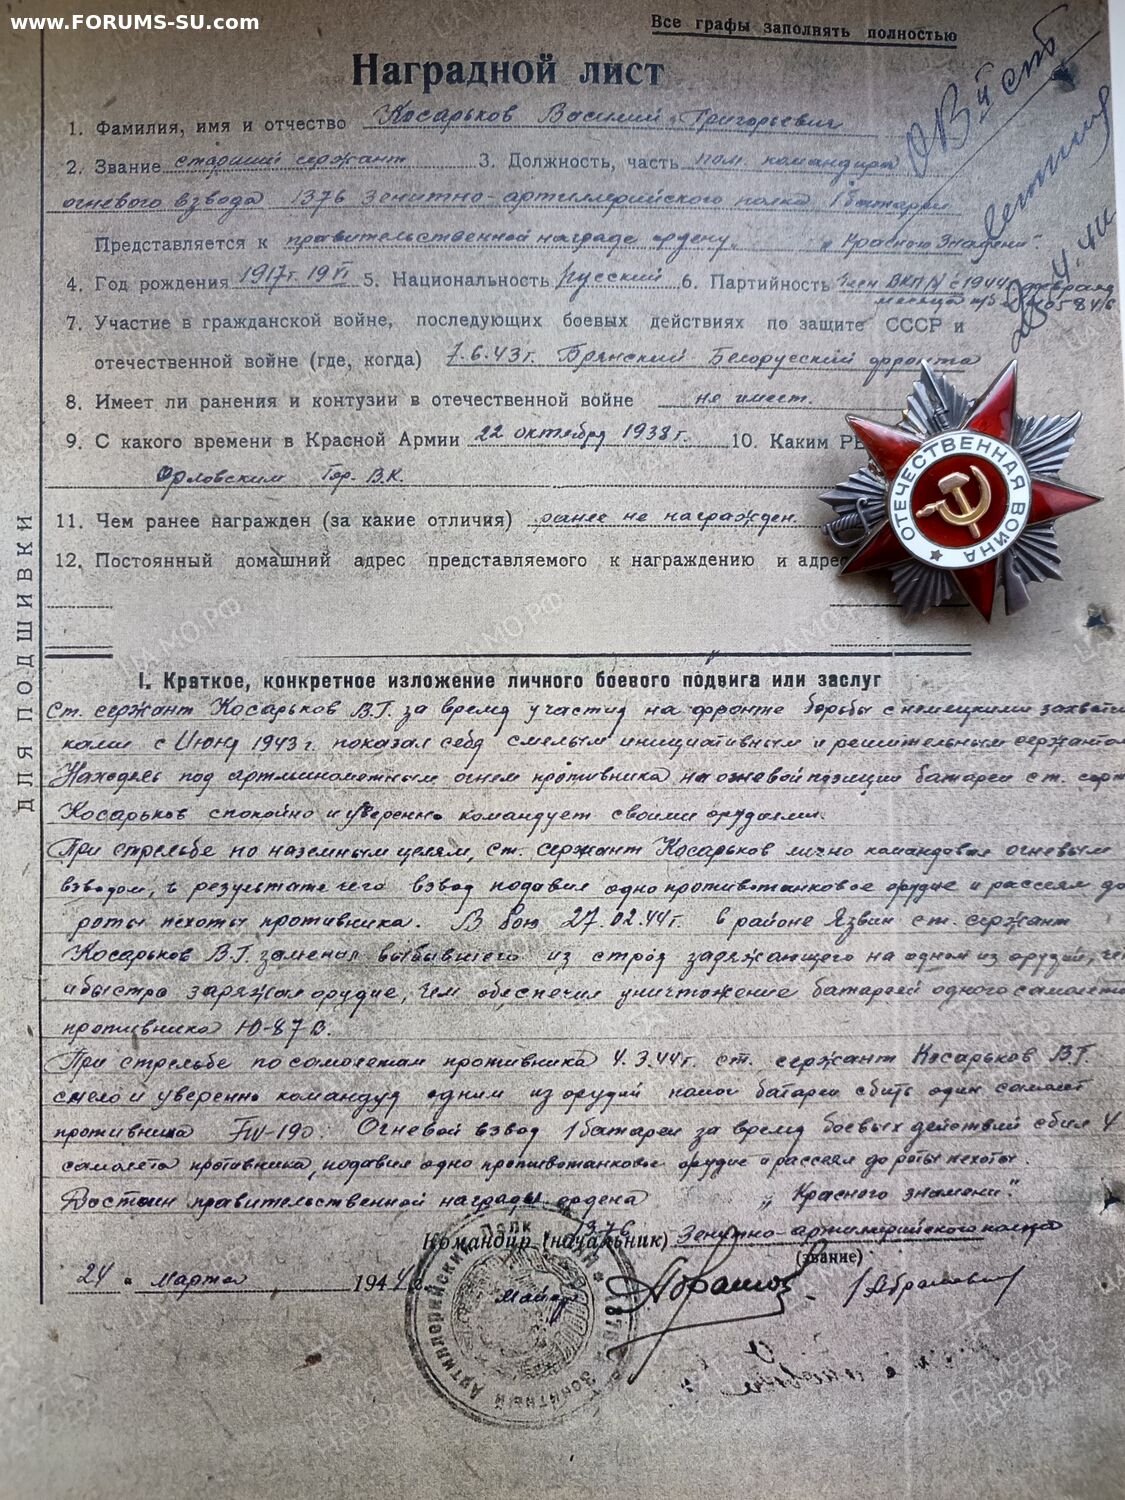 www.FORUMS-SU.com
Все графы заполнять полностью
Наградной лист
1. Фамилия, имя и отчество Косарьков Василий Григорьевич
2. Звание старший сержант 3. Должность, часть пом. командира
огневого взвода 1376 Зенитно-артиллерийского полка 1 батареи
Представляется к правительственной награде ордену „Красного Знамени".
4. Год рождения 1917г. 19 VI 5. Национальность Русский 6. Партийность член ВКП/б/ с 1944г. февраля
месяца
7. Участие в гражданской войне, последующих боевых действиях по защите СССР и
отечественной войне (где, когда) 7.6.43г. Брянский Белорусский фронта
8. Имеет ли ранения и контузии в отечественной войне не имеет.
9. С какого времени в Красной Армии 22 октября 1938г. 10. Каким РВ
Орловским Гор. В.К.
11. Чем ранее награжден (за какие отличия) ранее не награжден.
12. Постоянный домашний адрес представляемого к награждению и адрес
ОТЕЧЕСТВЕННАЯ ВОЙНА
ДЛЯ ПОДШИВКИ
I. Краткое, конкретное изложение личного боевого подвига или заслуг
Ст. сержант Косарьков В.Г. за время участия на фронте борьбы с немецкими захватчи
ками с Июня 1943г. показал себя смелым инициативным и решительным сержантом
Находясь под артминометным огнем противника, на огневой позиции батареи ст. серж
Косарьков спокойно и уверенно командует своими орудиями.
При стрельбе по наземным целям, ст. сержант Косарьков лично командовал огневым
взводом, в результате чего взвод подавил одно противотанковое орудие и рассеял до
роты пехоты противника. В бою 27.02.44г. в районе Язвин ст. сержант
Косарьков В.Г. заменил выбывшего из строя заряжающего на одном из орудий,
и быстро заряжал орудие, чем обеспечил уничтожение батареей одного самолета
противника Ю-87 В.
При стрельбе по самолетам противника 4.3.44г. ст. сержант Косарьков В.Г.
смело и уверенно командуя одним из орудий помог батареи сбить один самолет
противника FW-190. Огневой взвод 1 батареи за время боевых действий сбил 4
самолета противника, подавил одно противотанковое орудие и рассеял до роты пехоты.
Достоин правительственной награды ордена „Красного знамени".
Командир (начальник) 1376 Зенитно-артиллерийского полка
(звание)
24 " Марта 1944 г. Майор /Абрамович/